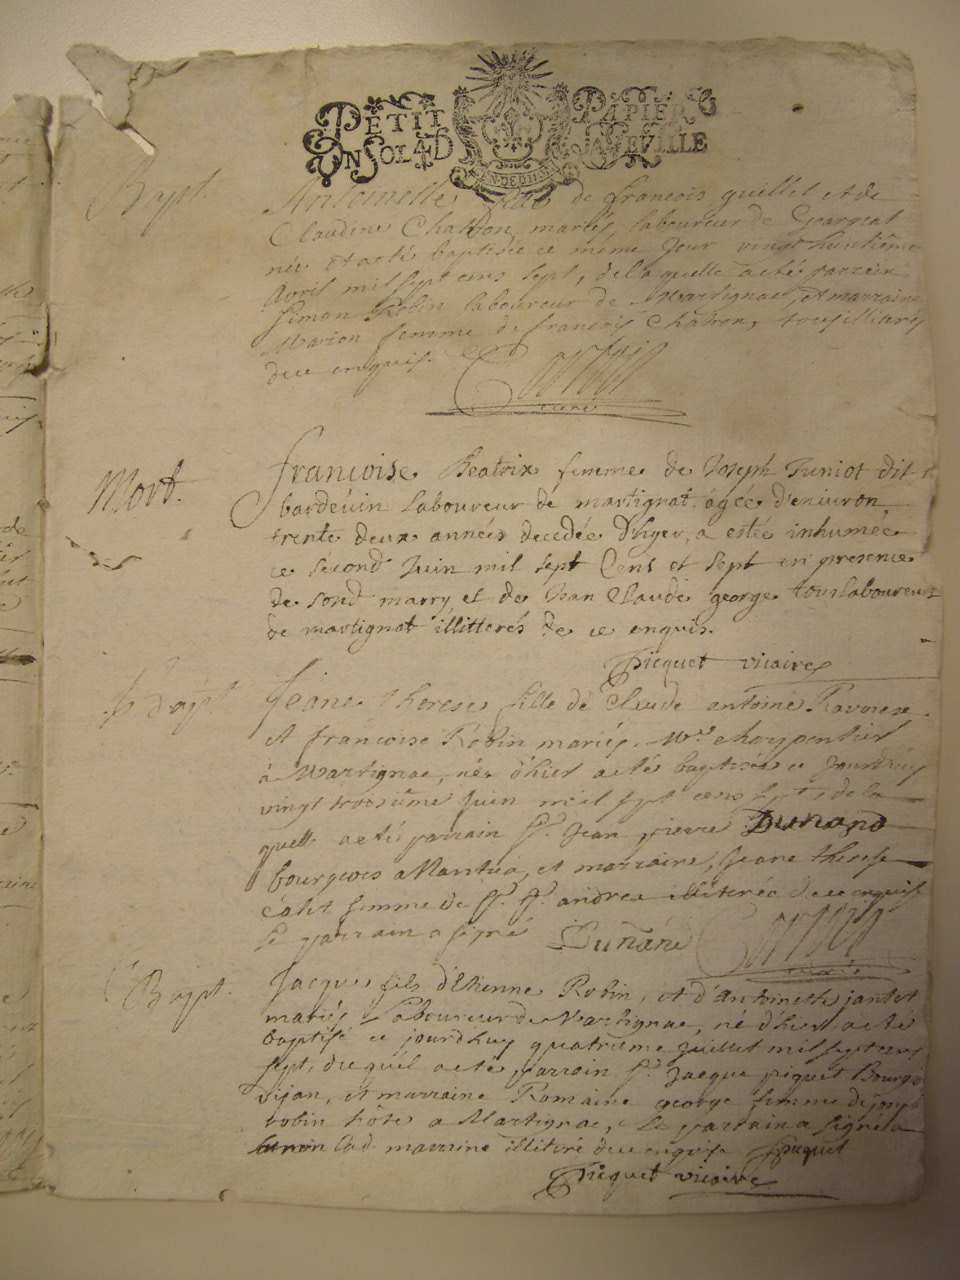 PETIT PAPIER
UN SOL 4D LA FEVILLE
Bapt.
Antoinette fille de francois quillet et de
Claudine Chatron mariés, laboureur de
née et a été baptisée ce même jour vingt huitième
Avril mil sept cens sept, de laquelle a été parrain
Simon Robin laboureur de Martignac, et marraine
Marion femme de francois Chatron, tous illitérés
de ce enquis.
curé
Mort.
francoise Beatrix femme de Joseph Juniot dit
bardeuin laboureur de martignat agée d'enuiron
trente deux années decedée d'hyer, a estée inhumée
ce second Juin mil sept Cens et sept en presence
de sond marry et de Jean Claude george tous laboureurs
de martignat illitterés de ce enquis.
Picquet vicaire
Bapt
Jeane therese fille de Claude antoine Ravoire
et francoise Robin mariés, Mre charpentier
à Martignac, née d'hier a eté baptisée ce jourdhuy
vingt troisième Juin mil sept cens sept, de la
quelle a eté parrain Sr. Jean pierre Dunand
bourgeois a Nantua, et marraine Jeane therese
femme de Sr. andrea illiterée de ce enquise
le parrain a signé Dunand
curé
Bapt.
Jacque fils d'Etienne Robin, et d'Antoinette jantet
mariés Laboureur de Martignac, né d'hier a eté
baptisé ce jourdhuy quatrième juillet mil sept cens
sept, duquél a eté parrain Sr. Jacque piquet Bourgeois
dijon, et marraine Romaine george femme de joseph
robin hôte a Martignac, Le parrain a signé
non lad. marraine illitéré de ce enquise Piquet
Picquet vicaire